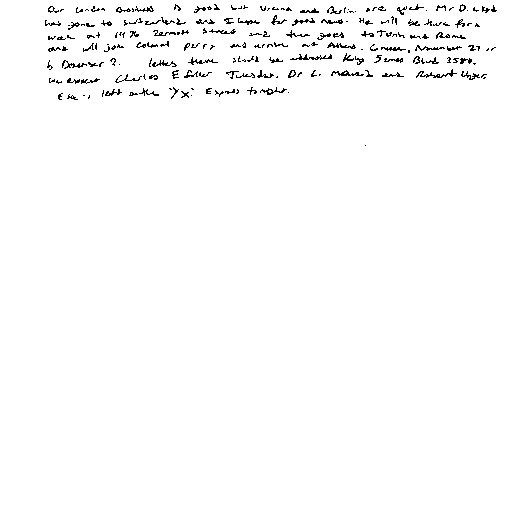 Our London business is good but Vienna and Berlin are quiet. Mr D. Lloyd
has gone to Switzerland and I hope for good news. He will be there for a
week at 1496 Zermott Street and then goes to Turin and Rome
and will join Colonel Perry and arrive at Athens, Greece, November 27 or
December 2. Letters there should be addressed King James Blvd 3580.
We expect Charles E Fuller Tuesday. Dr L. McQuaid and Robert Unger,
Esq., left on the "YX" Express tonight.